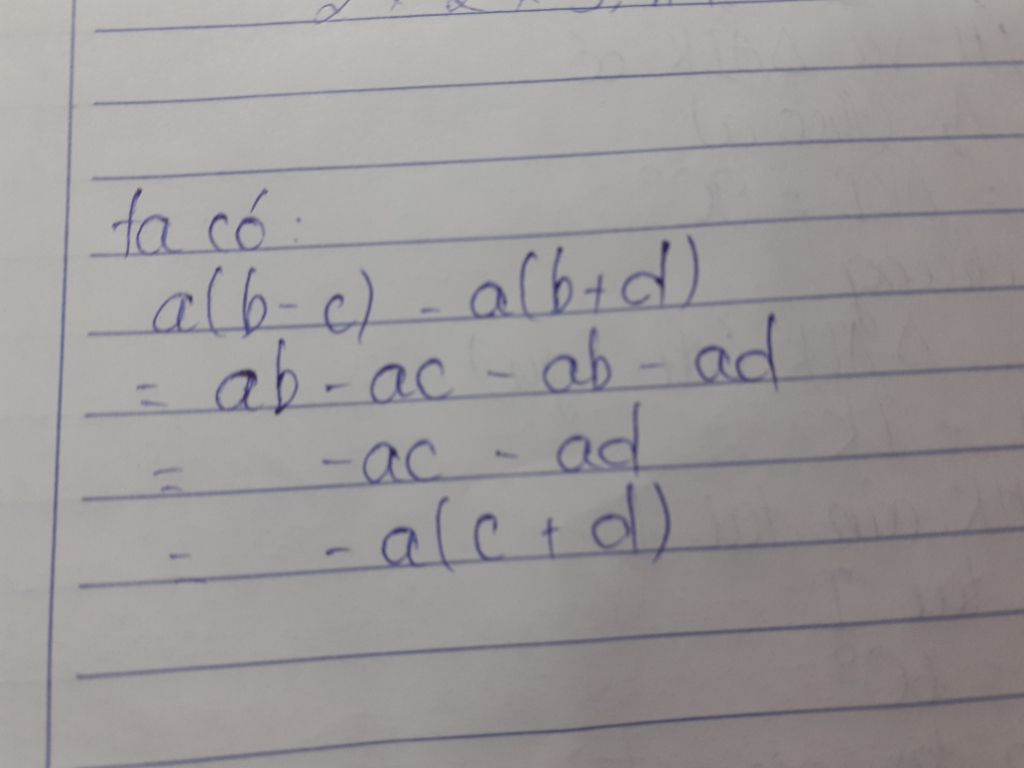 ta có:
a(b - c) - a(b + d)
= ab - ac - ab - ad
= -ac - ad
= -a(c + d)